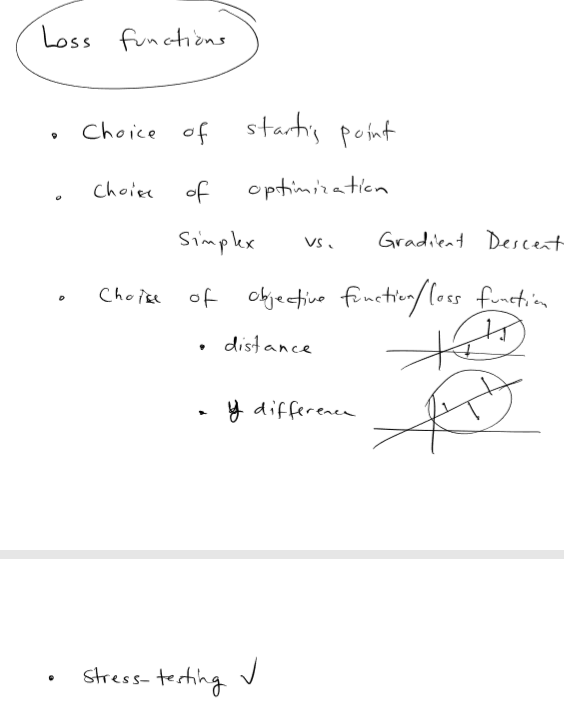 Loss functions
• Choice of starting point
• Choice of optimization
Simplex vs. Gradient Descent
• Choice of objective function/loss function
• distance
• y difference
• stress-testing ✓